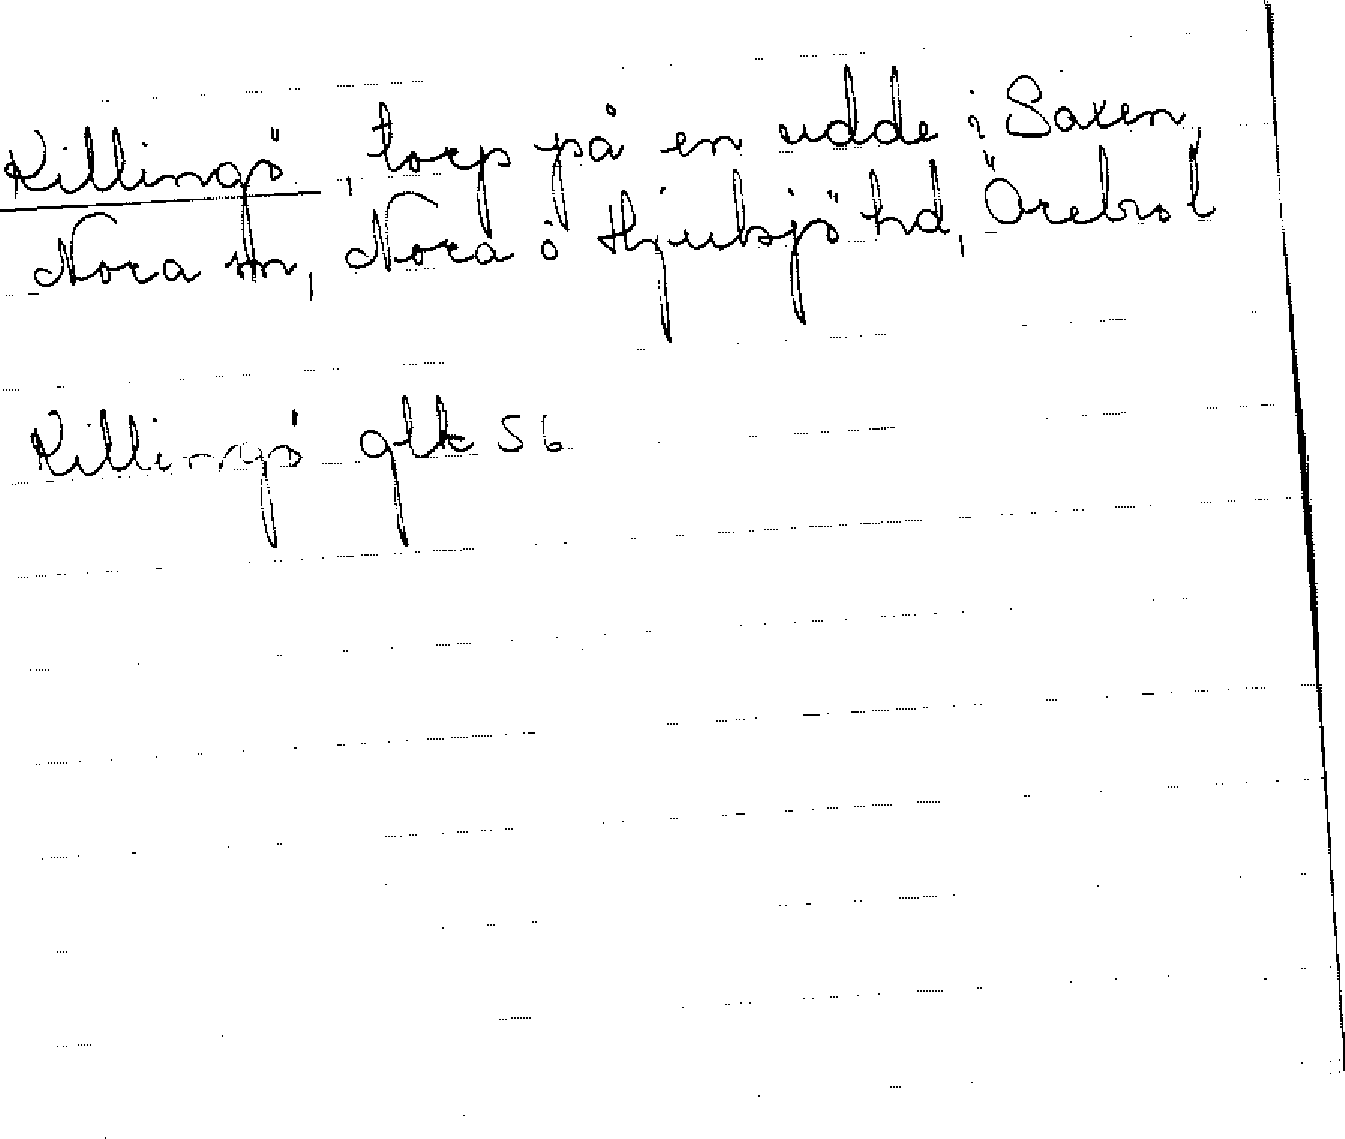 Killingö, torp på en udde i Saxen,
Nora sn, Nora o Hjulsjö hd, Örebro l
Killingö glk 56